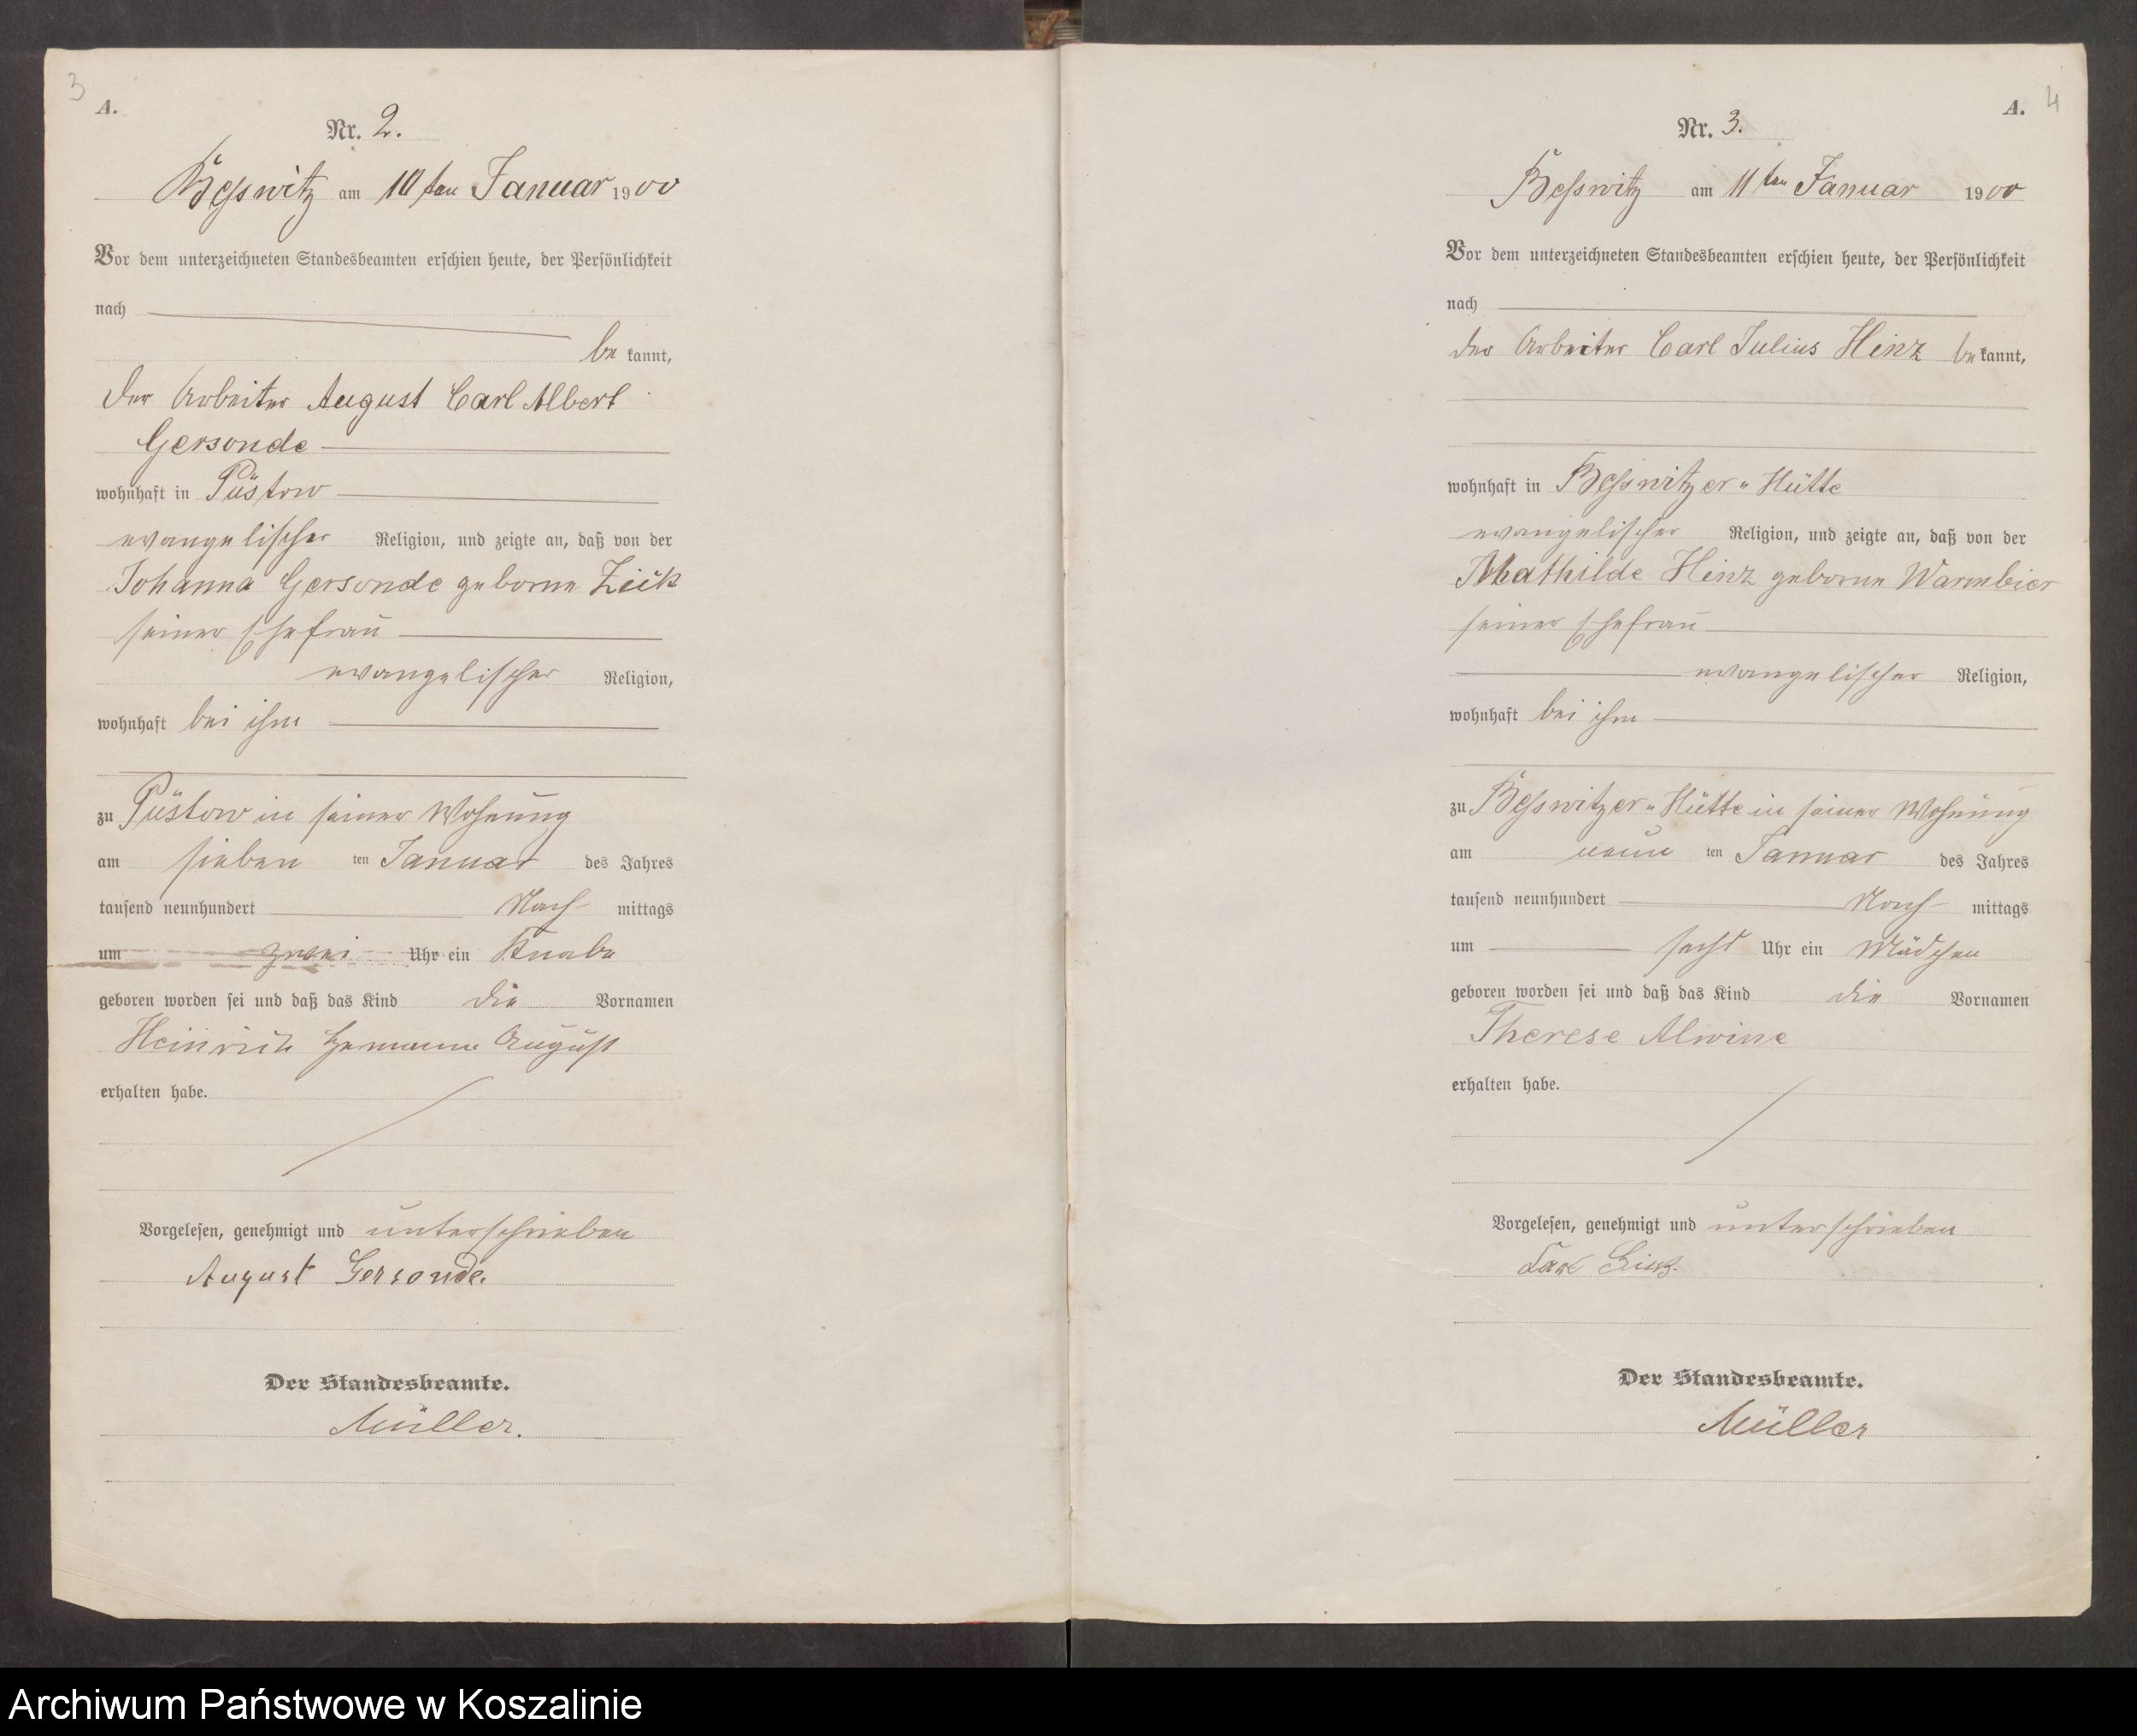 3
A.
Nr. 2.
Beßwitz am 10 ten Januar 1900
Vor dem unterzeichneten Standesbeamten erschien heute, der Persönlichkeit
nach
be kannt,
der Arbeiter August Carl Albert
Gersonde
wohnhaft in Püstow
evangelischer Religion, und zeigte an, daß von der
Johanna Gersonde geborne
seiner Ehefrau
evangelischer Religion,
wohnhaft bei ihm
zu Püstow in seiner Wohnung
am sieben ten Januar des Jahres
tausend neunhundert Nach mittags
um zwei Uhr ein Knabe
geboren worden sei und daß das Kind die Vornamen
Heinrich Hermann August
erhalten habe.
Vorgelesen, genehmigt und unterschrieben
August Gersonde.
Der Standesbeamte.
Müller.
A. 4
Nr. 3.
Beßwitz am 11 ten Januar 1900
Vor dem unterzeichneten Standesbeamten erschien heute, der Persönlichkeit
nach
der Arbeiter Carl Julius Hinz be kannt,
wohnhaft in Beßwitzer-Hütte
evangelischer Religion, und zeigte an, daß von der
Mathilde Hinz geborne Warmbier
seiner Ehefrau
evangelischer Religion,
wohnhaft bei ihm
zu Beßwitzer-Hütte in seiner Wohnung
am neun ten Januar des Jahres
tausend neunhundert Nach mittags
um sechs Uhr ein Mädchen
geboren worden sei und daß das Kind die Vornamen
Therese Alwine
erhalten habe.
Vorgelesen, genehmigt und unterschrieben
Carl Hinz.
Der Standesbeamte.
Müller
Archiwum Państwowe w Koszalinie